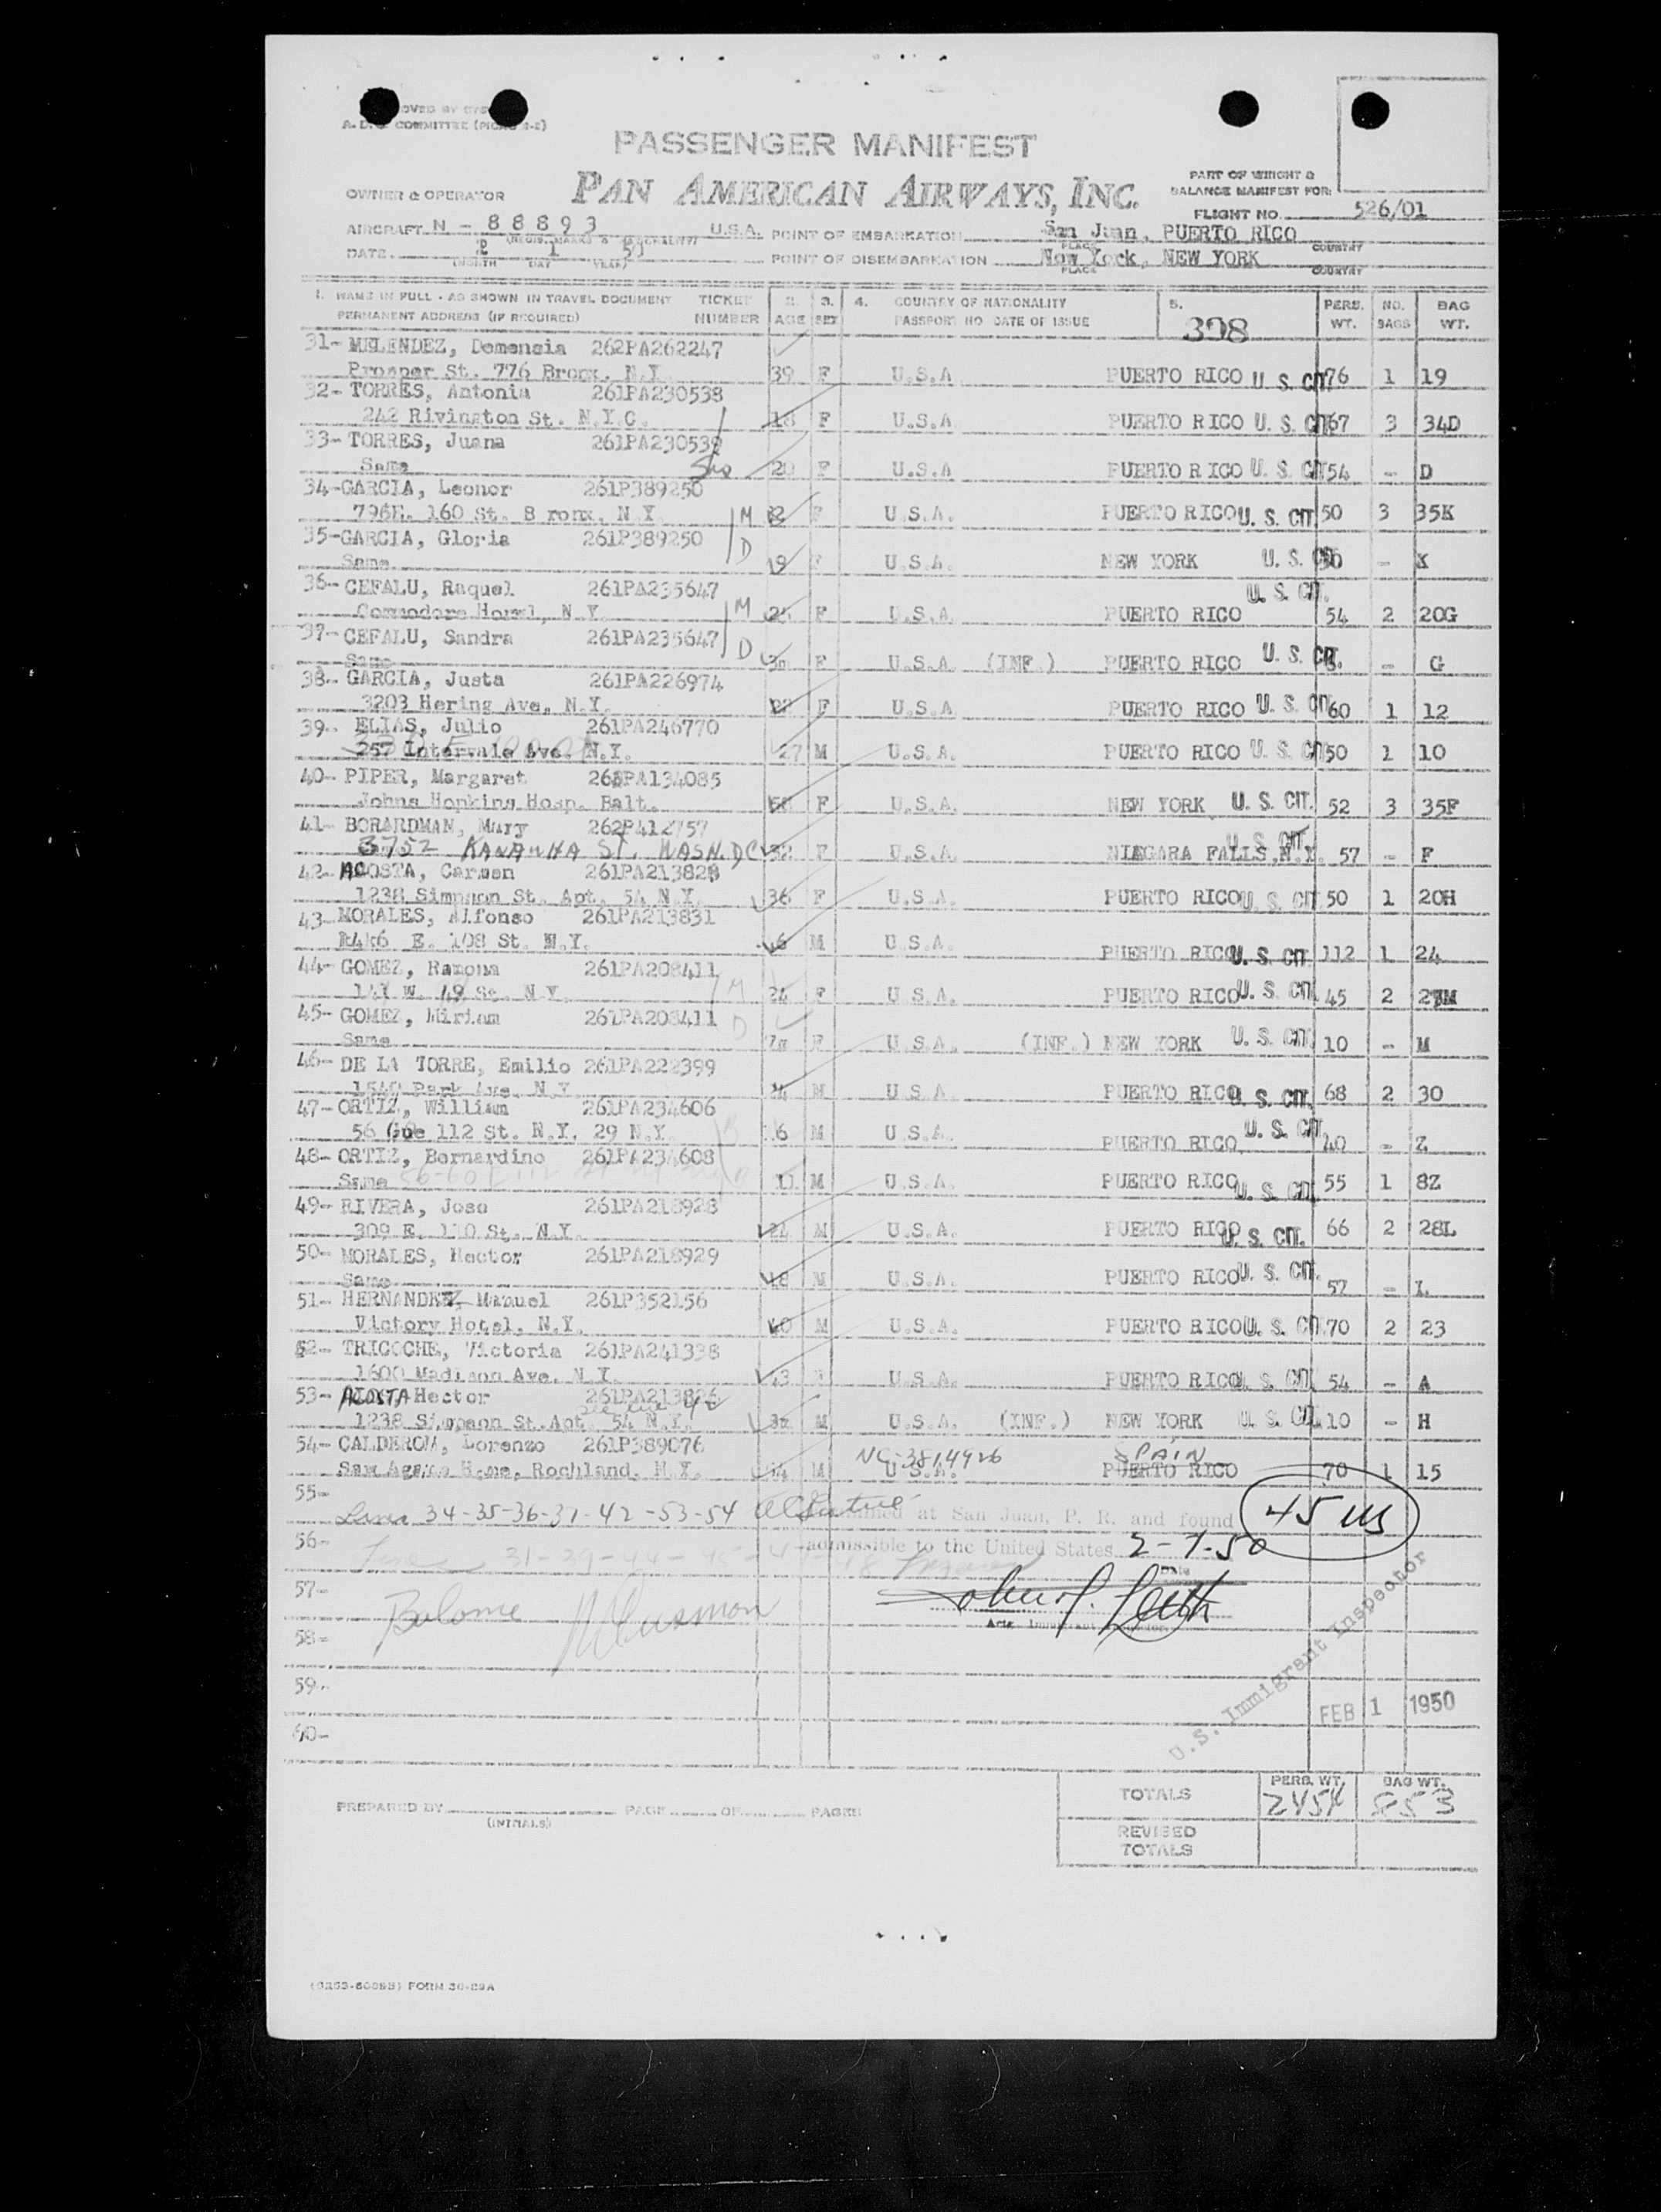 OVED BY
A.D. COMMITTEE
PASSENGER MANIFEST
OWNER & OPERATOR PAN AMERICAN AIRWAYS, INC.
PART OF WEIGHT &
BALANCE MANIFEST FOR:
FLIGHT NO. 526/01
AIRCRAFT N - 88893 U.S.A. POINT OF EMBARKATION San Juan, PUERTO RICO
PLACE COUNTRY
DATE 2 1 50 POINT OF DISEMBARKATION New York, NEW YORK
(MONTH DAY YEAR) PLACE COUNTRY
1. NAME IN FULL - AS SHOWN IN TRAVEL DOCUMENT TICKET 2. 3. 4. COUNTRY OF NATIONALITY 5. PERS. NO. BAG
PERMANENT ADDRESS (IF REQUIRED) NUMBER AGE SEX PASSPORT NO DATE OF ISSUE 398 WT. BAGS WT.
31- MELENDEZ, Demensia 262PA262247
Prosper St. 776 Bronx. N.Y. 39 F U.S.A PUERTO RICO U. S. CIT 76 1 19
32- TORRES, Antonia 261PA230538
242 Rivington St. N.Y.C. 18 F U.S.A PUERTO RICO U. S. CIT 67 3 34D
33- TORRES, Juana 261PA230539
Same Sis 20 F U.S.A PUERTO R ICO U. S. CIT 54 - D
34-GARCIA, Leonor 261P389250
796E. 160 St. B ronx. N Y. M F U.S.A. PUERTO RICO U. S. CIT 50 3 35K
35-GARCIA, Gloria 261P389250
Same D 19 F U.S.A. NEW YORK U. S. CIT - K
36- CEFALU, Raquel 261PA235647 U. S. CIT.
Commodore Hotel, N.Y. M F U.S.A. PUERTO RICO 54 2 20G
37- CEFALU, Sandra 261PA235647
Same D 3m F U.S.A. (INF.) PUERTO RICO U. S. CIT. - G
38- GARCIA, Justa 261PA226974
3203 Hering Ave, N.Y. F U.S.A PUERTO RICO U. S. CIT 60 1 12
39- ELIAS, Julio 261PA246770
257 Intervale Ave. N.Y. 27 M U.S.A. PUERTO RICO U. S. CIT 50 1 10
40- PIPER, Margaret PA134085
Johns Hopkins Hosp. Balt. F U.S.A. NEW YORK U. S. CIT. 52 3 35F
41- BORARDMAN, Mary 262P412757
3752 KANAWHA ST. WASH. DC F U.S.A U. S. CIT. NIAGARA FALLS, N.Y. 57 - F
42- ACOSTA, Carmen 261PA213828
1238 Simpson St. Apt. 54 N.Y. 36 F U.S.A. PUERTO RICO U. S. CIT 50 1 20H
43- MORALES, Alfonso 261PA213831
E. 108 St. N.Y. M U.S.A. PUERTO RICO U. S. CIT 112 1 24
44- GOMEZ, Ramona 261PA208411
W. 49 St. N.Y. M 24 F U.S.A. PUERTO RICO U. S. CIT 45 2
45- GOMEZ, Miriam 261PA208411
Same D 7m F U.S.A. (INF.) NEW YORK U. S. CIT 10 - M
46- DE LA TORRE, Emilio 261PA222399
1540 Park Ave. N.Y. M U.S.A. PUERTO RICO U. S. CIT. 68 2 30
47- ORTIZ, William 261PA234606
56 112 St. N.Y. 29 N.Y. 6 M U.S.A. PUERTO RICO U. S. CIT 40 - Z
48- ORTIZ, Bernardino 261PA234608
Same 11 M U.S.A. PUERTO RICO U. S. CIT 55 1 8Z
49- RIVERA, Jose 261PA218928
309 E. 110 St. N.Y. 24 M U.S.A. PUERTO RICO U. S. CIT. 66 2 28L
50- MORALES, Hector 261PA218929
Same 18 M U.S.A. PUERTO RICO U. S. CIT. 57 - L
51- HERNANDEZ, Manuel 261P352156
Victory Hotel, N.Y. 40 M U.S.A. PUERTO RICO U. S. CIT 70 2 23
52- TRICOCHE, Victoria 261PA241338
1600 Madison Ave. N.Y. 43 F U.S.A. PUERTO RICO U. S. CIT 54 - A
53- ACOSTA Hector 261PA213826
1238 Simpson St. Apt. 54 N.Y. M U.S.A. (INF.) NEW YORK U. S. CIT. 10 - H
54- CALDERON, Lorenzo 261P389076 NC-3814926 SPAIN
Rochland, N.Y. M U.S.A. PUERTO RICO 70 1 15
55-
Lines 34-35-36-37-42-53-54 at San Juan, P. R. and found 45 US
56- admissible to the United States 2-1-50
Date
57-
58-
U.S. Immigrant Inspector
59-
FEB 1 1950
60-
TOTALS PERS. WT. BAG WT.
853
PREPARED BY PAGE OF PAGES
(INITIALS)
REVISED
TOTALS
FORM 30-29A